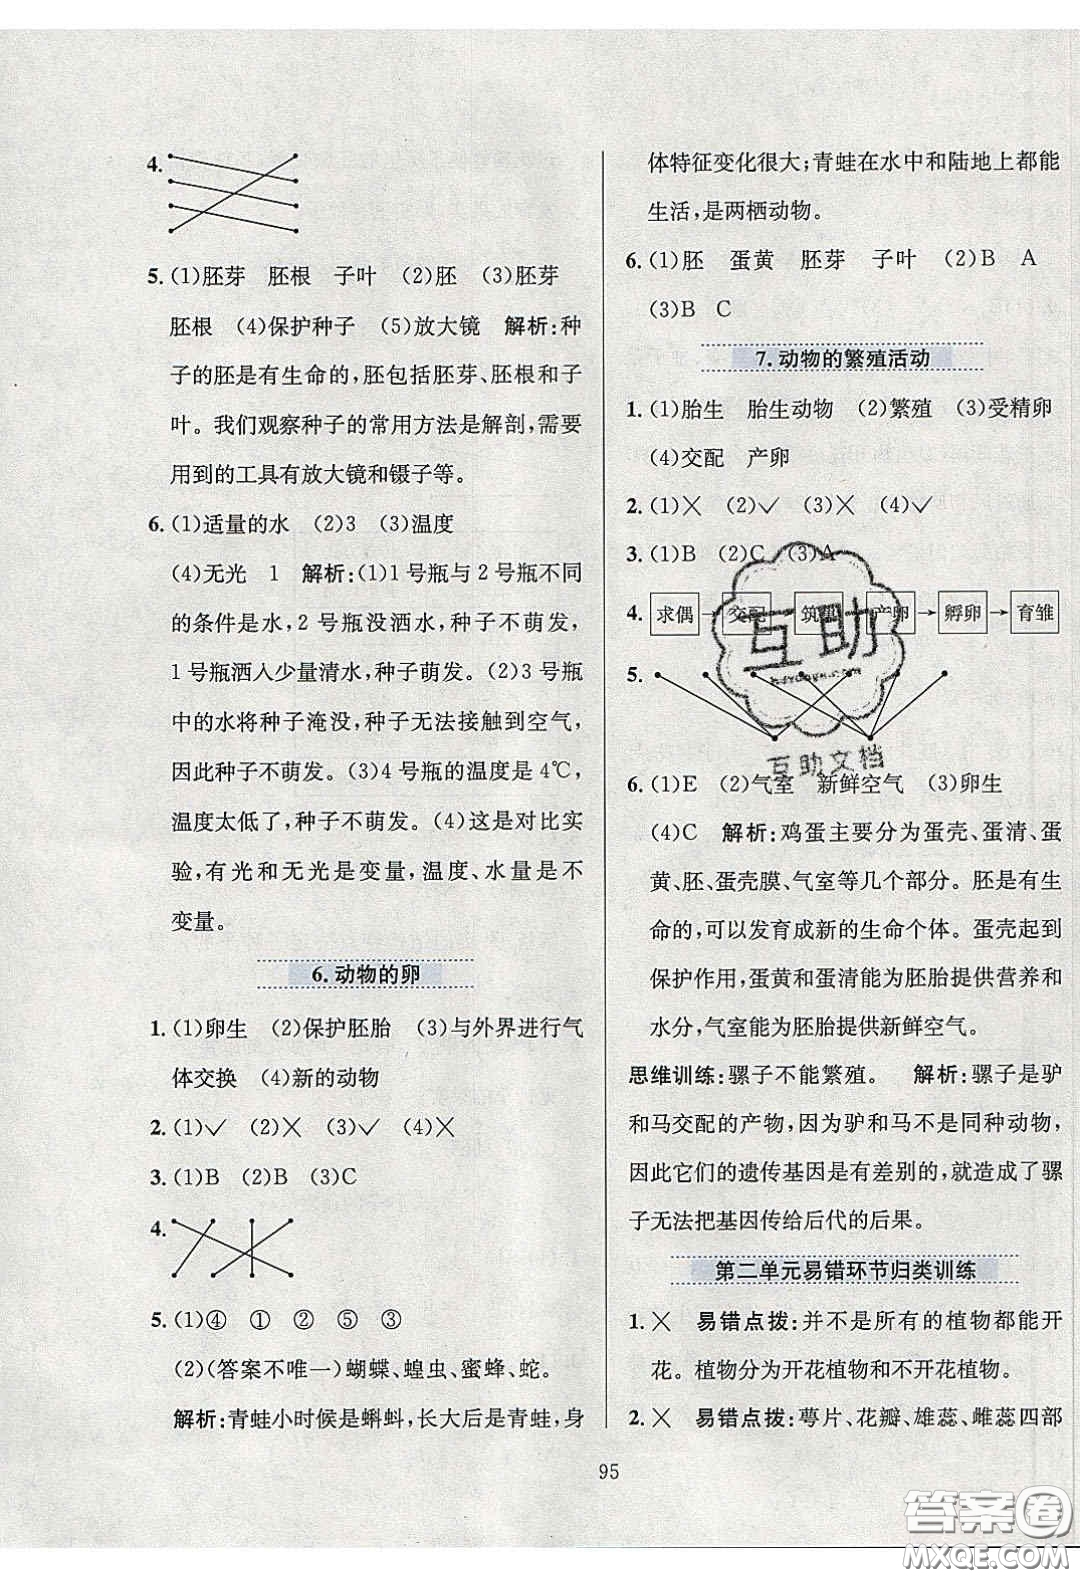 4.
5. (1)胚芽 胚根 子叶 (2)胚 (3)胚芽
胚根 (4)保护种子 (5)放大镜 解析:种
子的胚是有生命的,胚包括胚芽、胚根和子
叶。我们观察种子的常用方法是解剖,需要
用到的工具有放大镜和镊子等。
6. (1)适量的水 (2)3 (3)温度
(4)无光 1 解析:(1)1号瓶与2号瓶不同
的条件是水,2号瓶没洒水,种子不萌发,
1号瓶洒入少量清水,种子萌发。(2)3号瓶
中的水将种子淹没,种子无法接触到空气,
因此种子不萌发。(3)4号瓶的温度是4℃,
温度太低了,种子不萌发。(4)这是对比实
验,有光和无光是变量,温度、水量是不
变量。
6.动物的卵
1. (1)卵生 (2)保护胚胎 (3)与外界进行气
体交换 (4)新的动物
2. (1)✓ (2)╳ (3)✓ (4)╳
3. (1)B (2)B (3)C
4.
5. (1)④ ① ② ⑤ ③
(2)(答案不唯一)蝴蝶、蝗虫、蜜蜂、蛇。
解析:青蛙小时候是蝌蚪,长大后是青蛙,身
体特征变化很大;青蛙在水中和陆地上都能
生活,是两栖动物。
6. (1)胚 蛋黄 胚芽 子叶 (2)B A
(3)B C
7.动物的繁殖活动
1. (1)胎生 胎生动物 (2)繁殖 (3)受精卵
(4)交配 产卵
2. (1)╳ (2)✓ (3)╳ (4)✓
3. (1)B (2)C (3)A
4. 求偶→交配→筑巢→产卵→孵卵→育雏
5.
互助
互助文档
6. (1)E (2)气室 新鲜空气 (3)卵生
(4)C 解析:鸡蛋主要分为蛋壳、蛋清、蛋
黄、胚、蛋壳膜、气室等几个部分。胚是有生
命的,可以发育成新的生命个体。蛋壳起到
保护作用,蛋黄和蛋清能为胚胎提供营养和
水分,气室能为胚胎提供新鲜空气。
思维训练:骡子不能繁殖。 解析:骡子是驴
和马交配的产物,因为驴和马不是同种动物,
因此它们的遗传基因是有差别的,就造成了骡
子无法把基因传给后代的后果。
第二单元易错环节归类训练
1. ╳ 易错点拨:并不是所有的植物都能开
花。植物分为开花植物和不开花植物。
2. ╳ 易错点拨:萼片、花瓣、雄蕊、雌蕊四部
95
答案圈
MXQE.COM